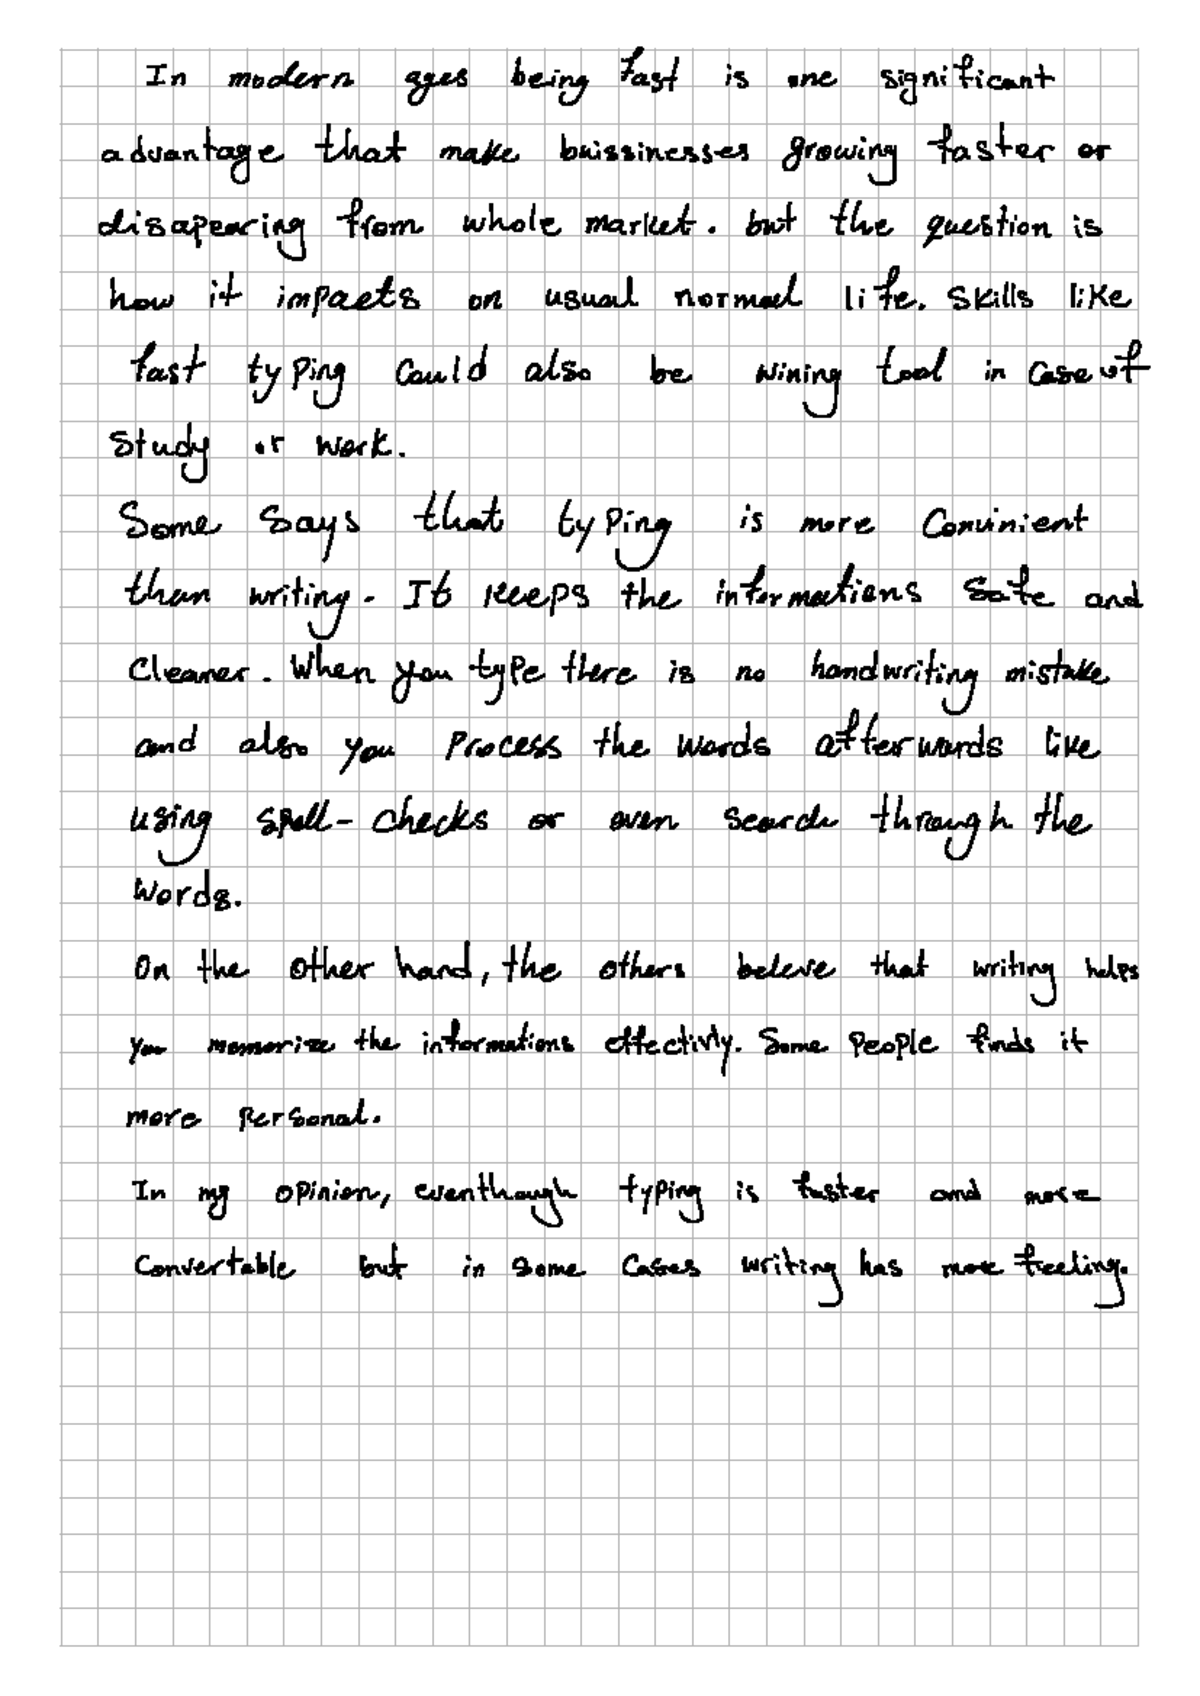 In modern ages being fast is one significant
advantage that make buissinesses growing faster or
disapearing from whole market. but the question is
how it impacts on usual normal life. Skills like
fast typing could also be wining tool in case of
study or work.
Some says that typing is more convinient
than writing. It keeps the informations safe and
cleaner. When you type there is no handwriting mistake
and also you process the words afterwards like
using spell-checks or even search through the
words.
On the other hand, the others beleve that writing helps
you memorize the informations effectivly. Some people finds it
more personal.
In my opinion, eventhough typing is faster and more
convertable but in some cases writing has more feeling.